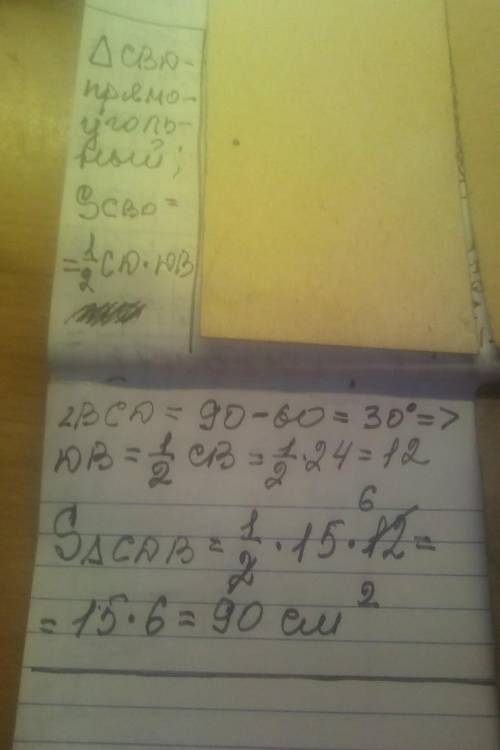 △CBD-
прямо-
уголь-
ный;
SCBD =
= 1/2 CD · DB
∠BCD = 90 - 60 = 30° =>
DB = 1/2 CB = 1/2 · 24 = 12
S△CDB = 1/2 · 15 · 12 =
6
= 15 · 6 = 90 см²